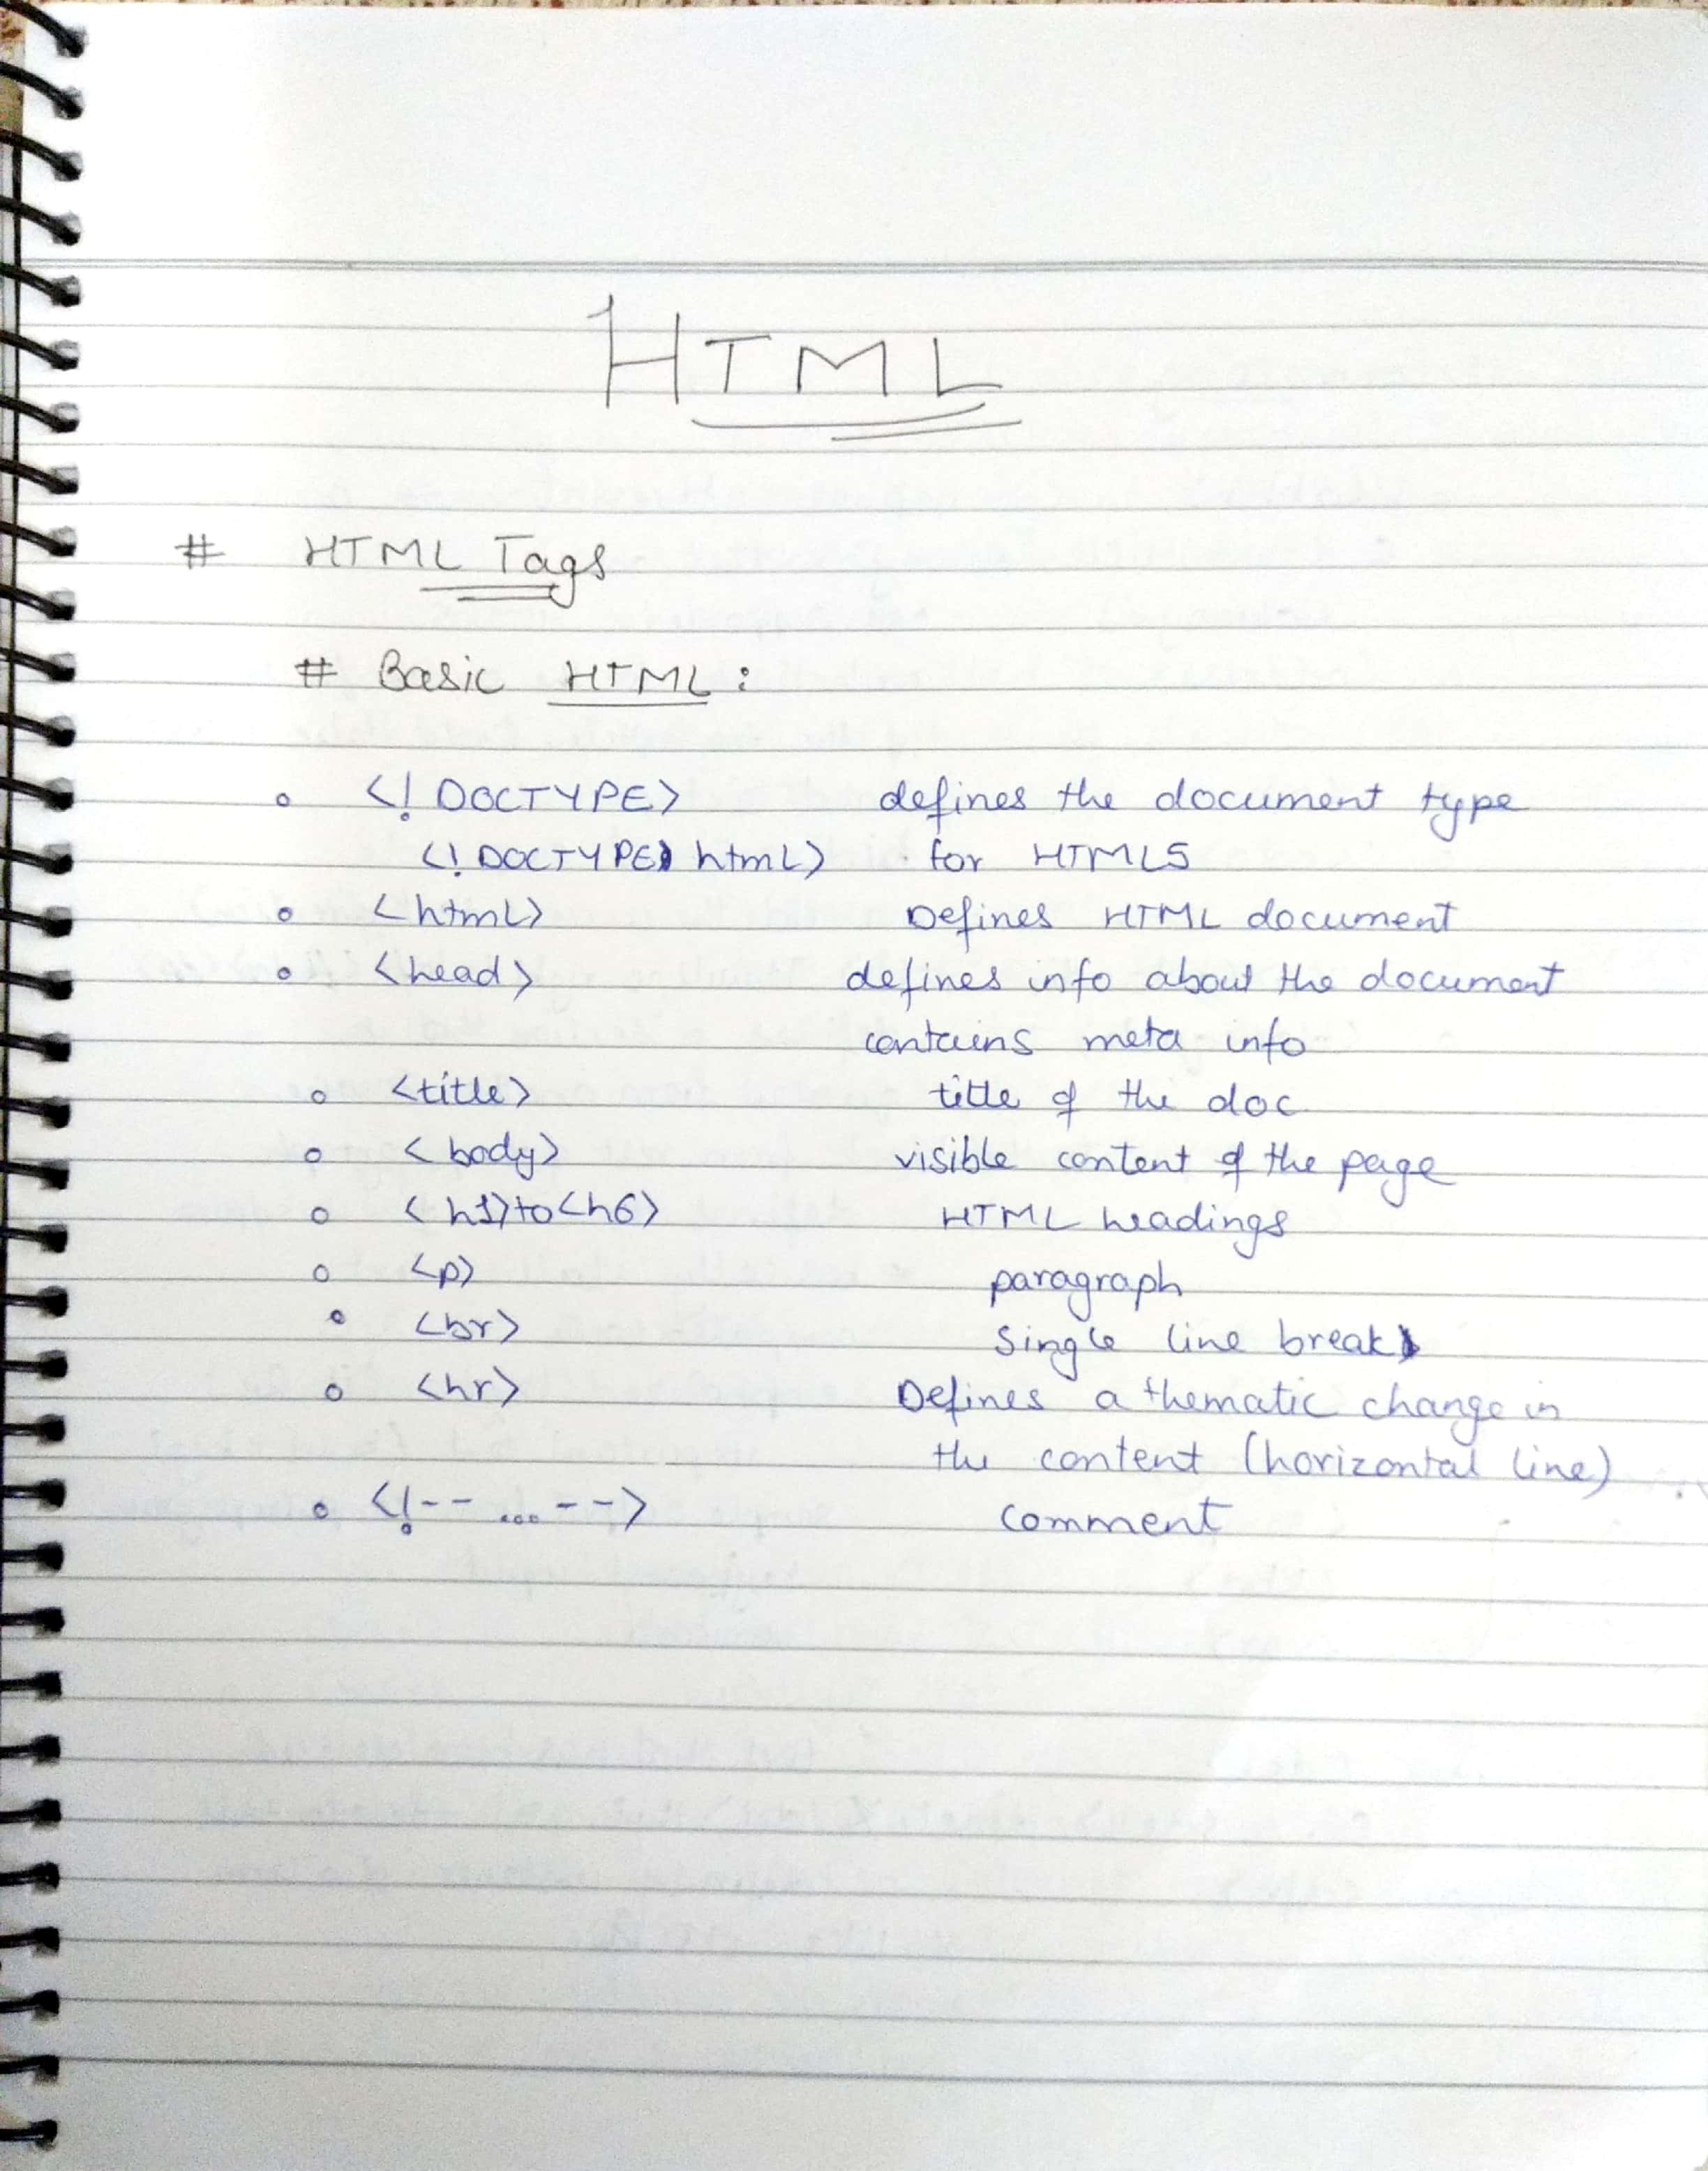 HTML
# HTML Tags
# Basic HTML :
<! DOCTYPE> defines the document type
<! DOCTYPE html> for HTML5
<html> Defines HTML document
<head> defines info about the document
contains meta info
<title> title of the doc
<body> visible content of the page
<h1> to <h6> HTML headings
<p> paragraph
<br> Single line break
<hr> Defines a thematic change in
the content (horizontal line)
<!-- ... --> comment